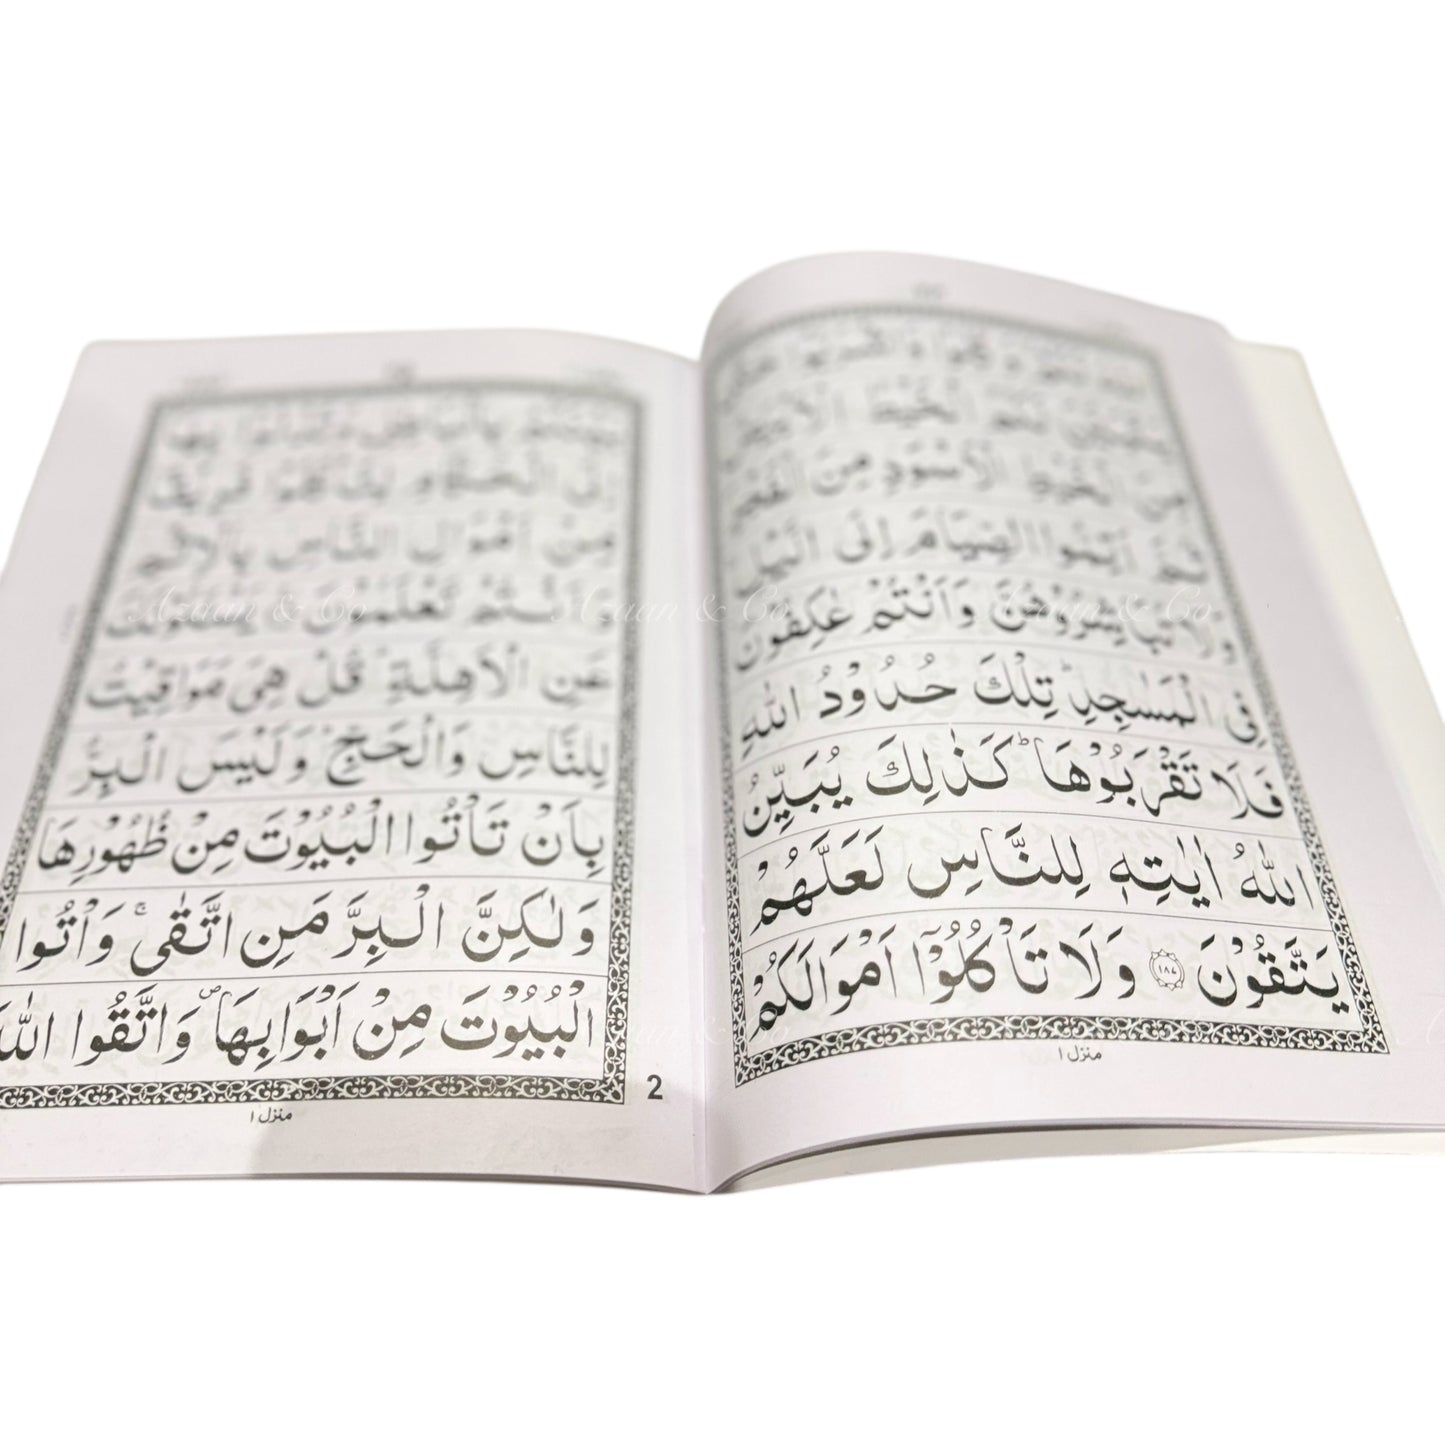 مِنَ الْخَيْطِ الْاَسْوَدِ مِنَ الْفَجْرِ
ثُمَّ اَتِمُّوا الصِّيَامَ اِلَى الَّيْلِ
وَلَا تُبَاشِرُوْهُنَّ وَاَنْتُمْ عٰكِفُوْنَ
فِى الْمَسٰجِدِؕ تِلْكَ حُدُوْدُ اللّٰهِ
فَلَا تَقْرَبُوْهَاؕ كَذٰلِكَ يُبَيِّنُ
اللّٰهُ اٰيٰتِهٖ لِلنَّاسِ لَعَلَّهُمْ
يَتَّقُوْنَ ﴿۱۸۷﴾ وَلَا تَاْكُلُوْٓا اَمْوَالَكُمْ
منزل ۱
اِلَى الْحُكَّامِ لِتَاْكُلُوْا فَرِيْقًا
مِّنْ اَمْوَالِ النَّاسِ بِالْاِثْمِ
وَاَنْتُمْ تَعْلَمُوْنَ يَسْـَٔلُوْنَكَ
عَنِ الْاَهِلَّةِؕ قُلْ هِىَ مَوَاقِيْتُ
لِلنَّاسِ وَالْحَجِّؕ وَلَيْسَ الْبِرُّ
بِاَنْ تَاْتُوا الْبُيُوْتَ مِنْ ظُهُوْرِهَا
وَلٰكِنَّ الْبِرَّ مَنِ اتَّقٰىۚ وَاْتُوا
الْبُيُوْتَ مِنْ اَبْوَابِهَا۪ وَاتَّقُوا اللّٰهَ
منزل ۱
2
Azaan & Co Azaan & Co Azaan & Co